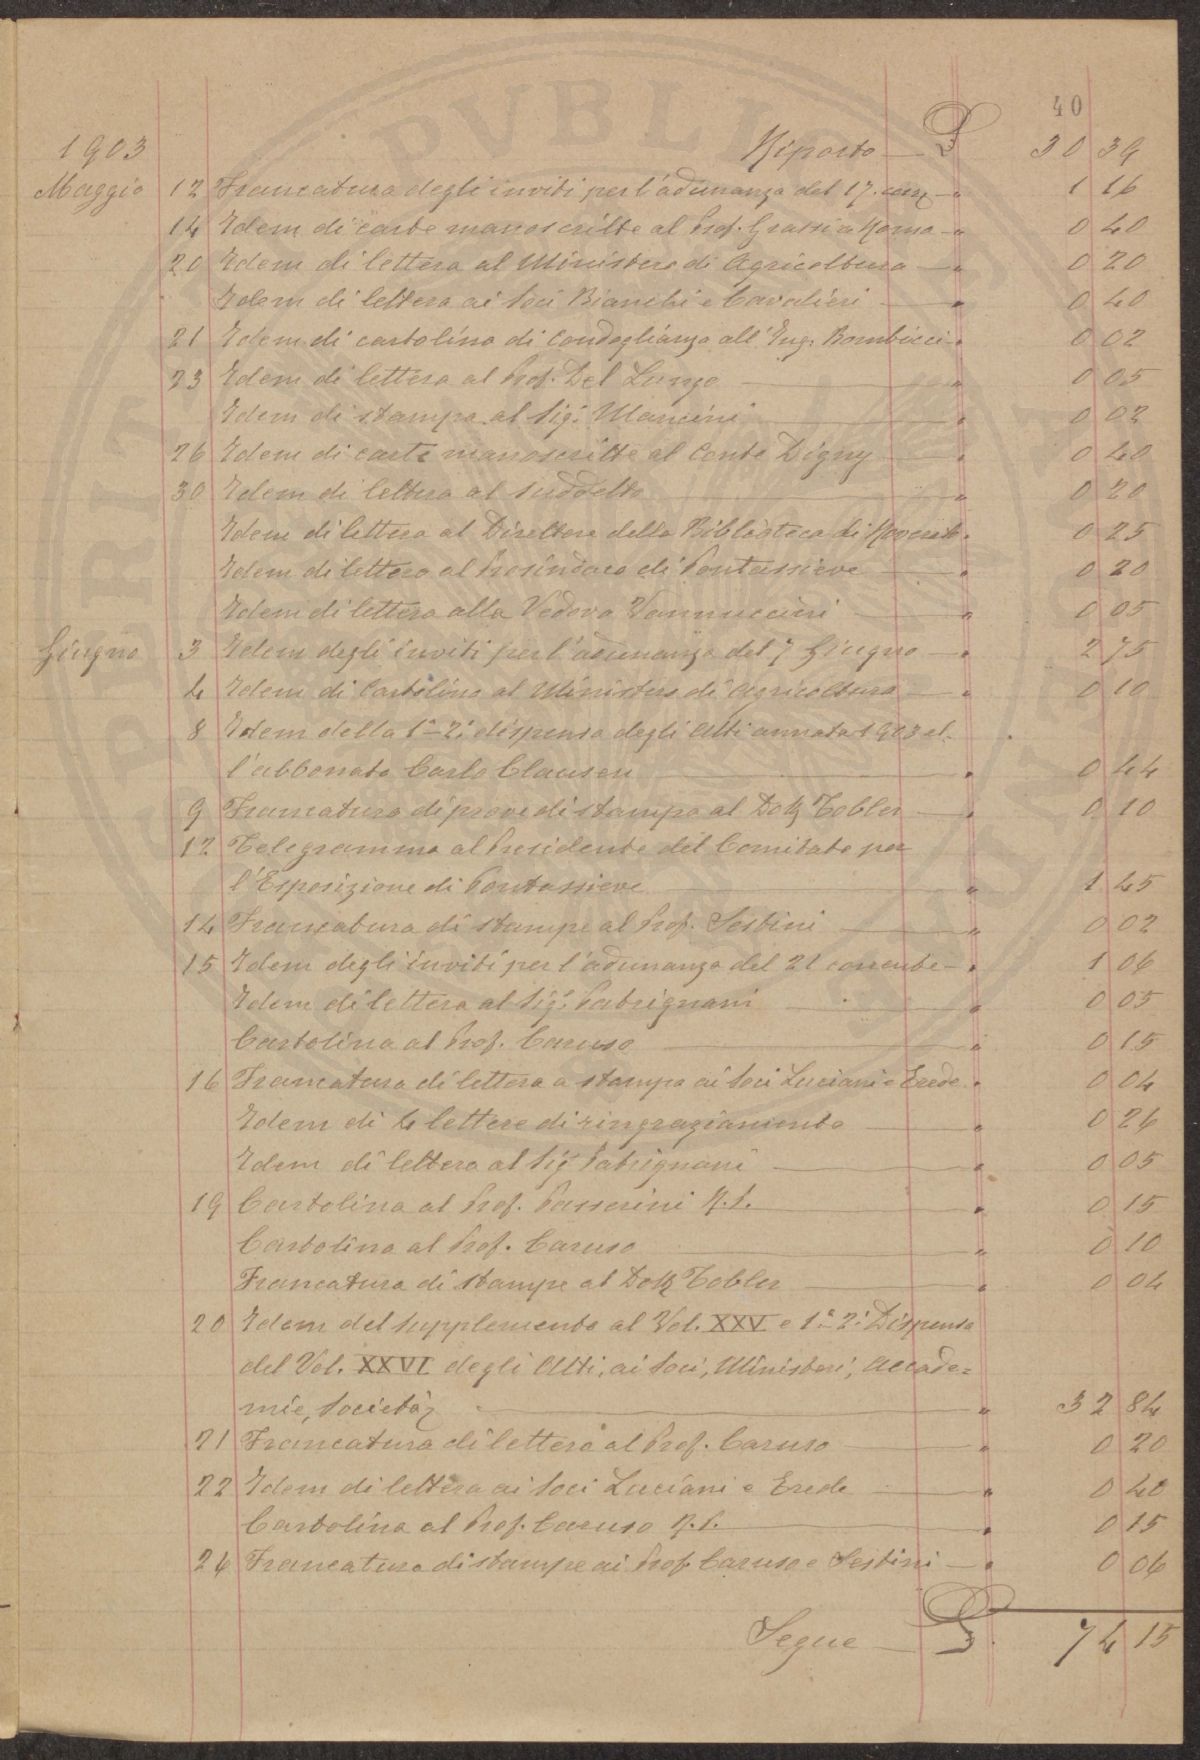 40
1903 Riporto L 30 39
Maggio 12 Francatura degli inviti per l'adunanza del 17. corr. " 1 16
14 Idem di carte manoscritte al Prof. Grassi a Roma " 0 40
20 Idem di lettera al Ministero di Agricoltura " 0 20
Idem di lettera ai Soci Bianchi e Cavalieri " 0 40
21 Idem di cartolina di condoglianza all'Ing. Bombicci " 0 02
23 Idem di lettera al Prof. Del Lungo " 0 05
Idem di stampa al Sig. Mancini " 0 02
26 Idem di carte manoscritte al Conte Digny " 0 40
30 Idem di lettera al suddetto " 0 20
Idem di lettera al Direttore della Biblioteca di " 0 25
Idem di lettera al Prosindaco di Pontassieve " 0 20
Idem di lettera alla Vedova Vannuccini " 0 05
Giugno 3 Idem degli inviti per l'adunanza del 7 Giugno " 2 75
4 Idem di Cartolina al Ministero di Agricoltura " 0 10
8 Idem della 1ª-2ª dispensa degli Atti annata 1903 al-
l'abbonato Carlo Clausen " 0 44
9 Francatura di prove di stampa al Dott Tobler " 0 10
12 Telegramma al Presidente del Comitato per
l'Esposizione di Pontassieve " 1 45
14 Francatura di stampe al Prof. Sestini " 0 02
15 Idem degli inviti per l'adunanza del 21 corrente " 1 06
Idem di lettera al Sig. Patrignani " 0 05
Cartolina al Prof. Caruso " 0 15
16 Francatura di lettera a stampa ai Soci Luciani e Erede " 0 04
Idem di 4 lettere di ringraziamento " 0 26
Idem di lettera al Sig. Patrignani " 0 05
19 Cartolina al Prof. Passerini R.P. " 0 15
Cartolina al Prof. Caruso " 0 10
Francatura di stampe al Dott Tobler " 0 04
20 Idem del Supplemento al Vol. XXV e 1ª-2ª Dispensa
del Vol. XXVI degli Atti, ai Soci, Ministeri, Accade=
mie, Società " 32 84
21 Francatura di lettera al Prof. Caruso " 0 20
22 Idem di lettera ai Soci Luciani e Erede " 0 40
Cartolina al Prof. Caruso R.P. " 0 15
24 Francatura di stampe ai Prof. Caruso e Sestini " 0 06
Segue L. 74 15